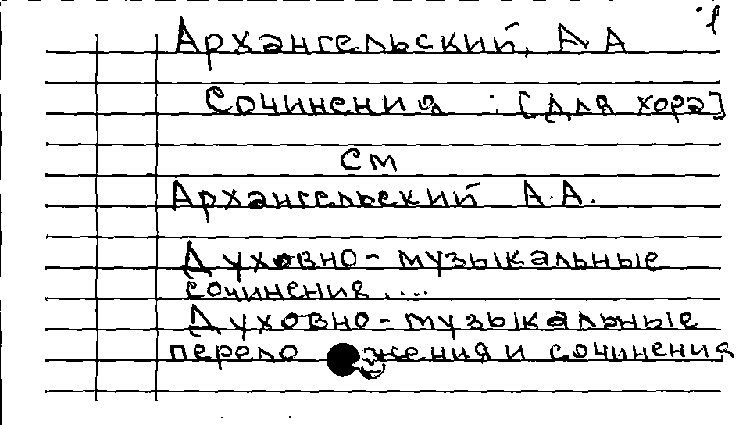 1
Архангельский, А.А
Сочинения : [для хора]
см
Архангельский А.А.
Духовно-музыкальные
сочинения ....
Духовно-музыкальные
перело жения и сочинения